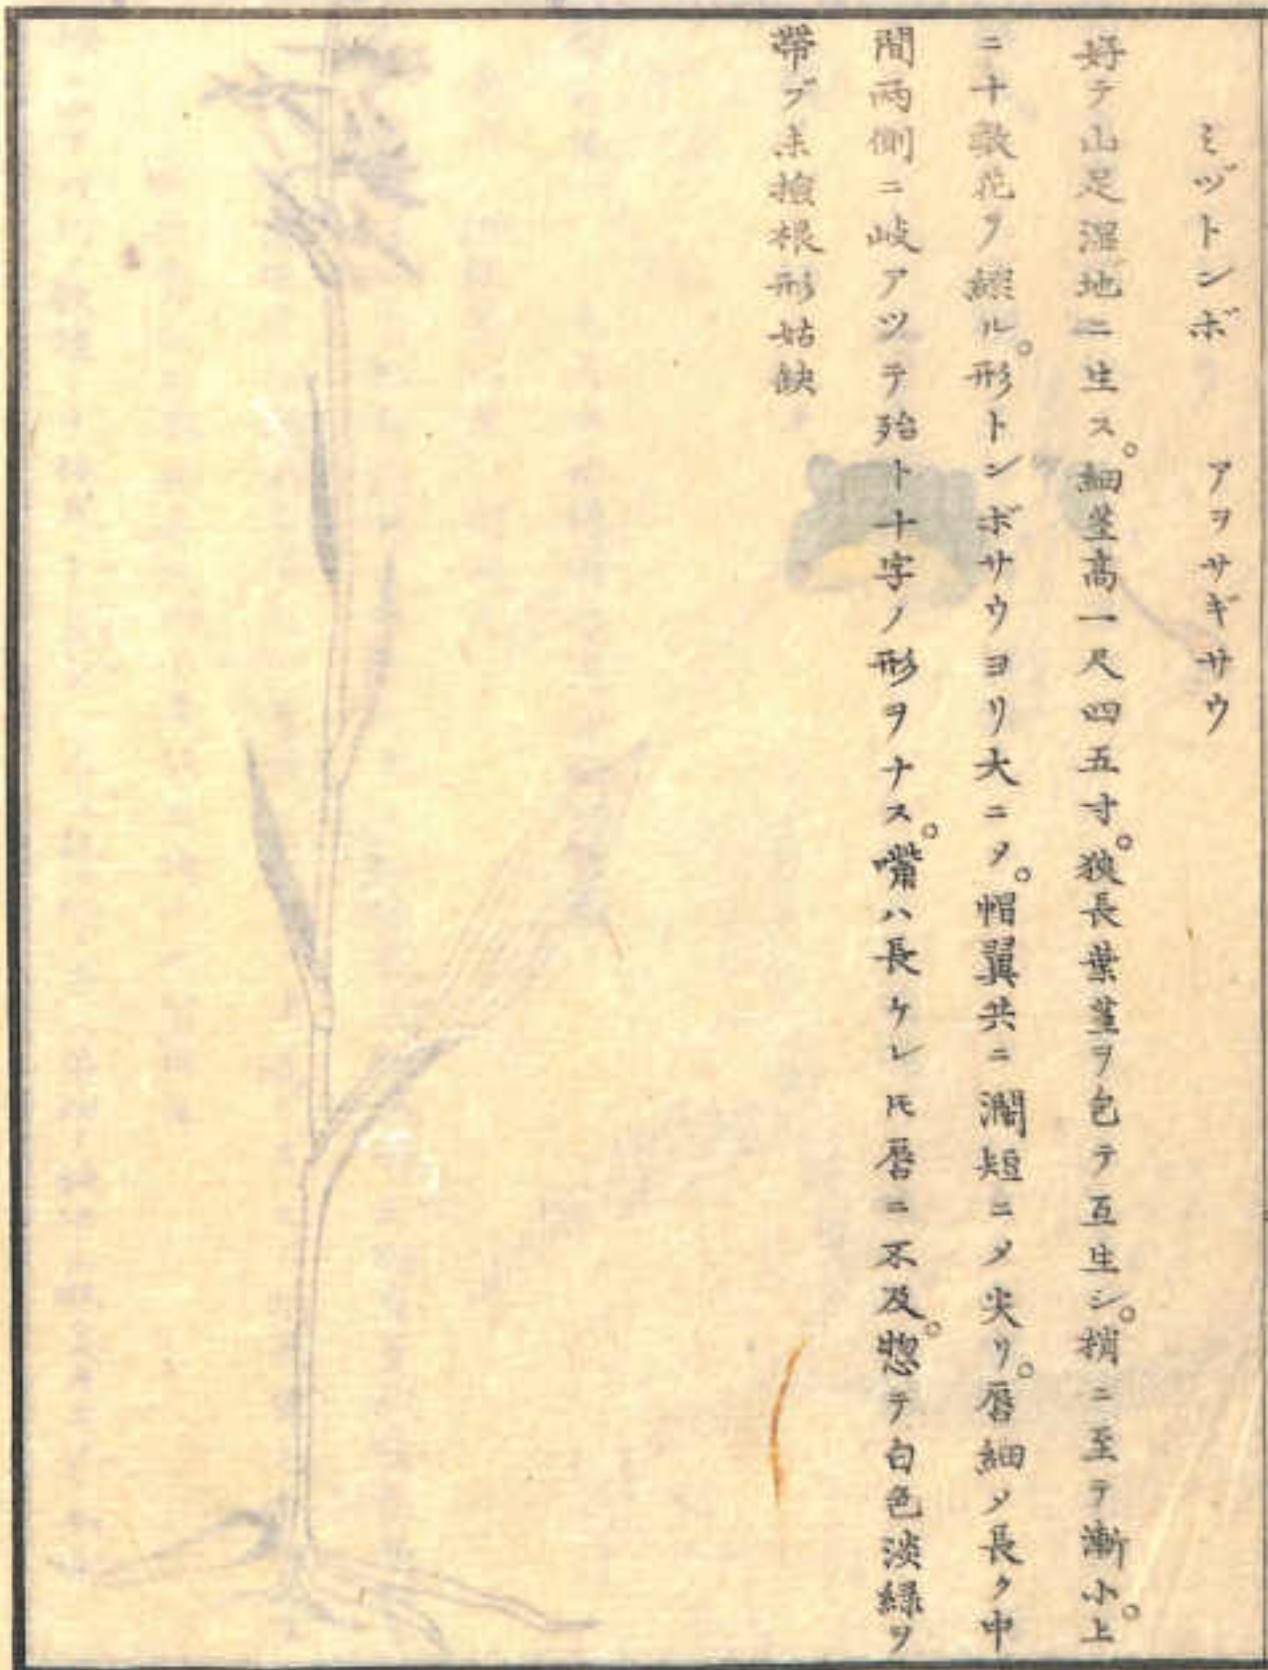 ミヅトンボ アヲサギサウ
好テ山足湿地ニ生ス。細莖高一尺四五寸。狹長葉莖ヲ包テ互生シ。梢ニ至テ漸小。上
ニ十数花ヲ綴ル。形トンボサウヨリ大ニメ。帽翼共ニ濶短ニメ尖リ。唇細メ長ク中
間両側ニ岐アツテ殆ト十字ノ形ヲナス。嘴ハ長ケレ𪜈唇ニ不及。惣テ白色淡緑ヲ
帶ブ未撿根形姑缺